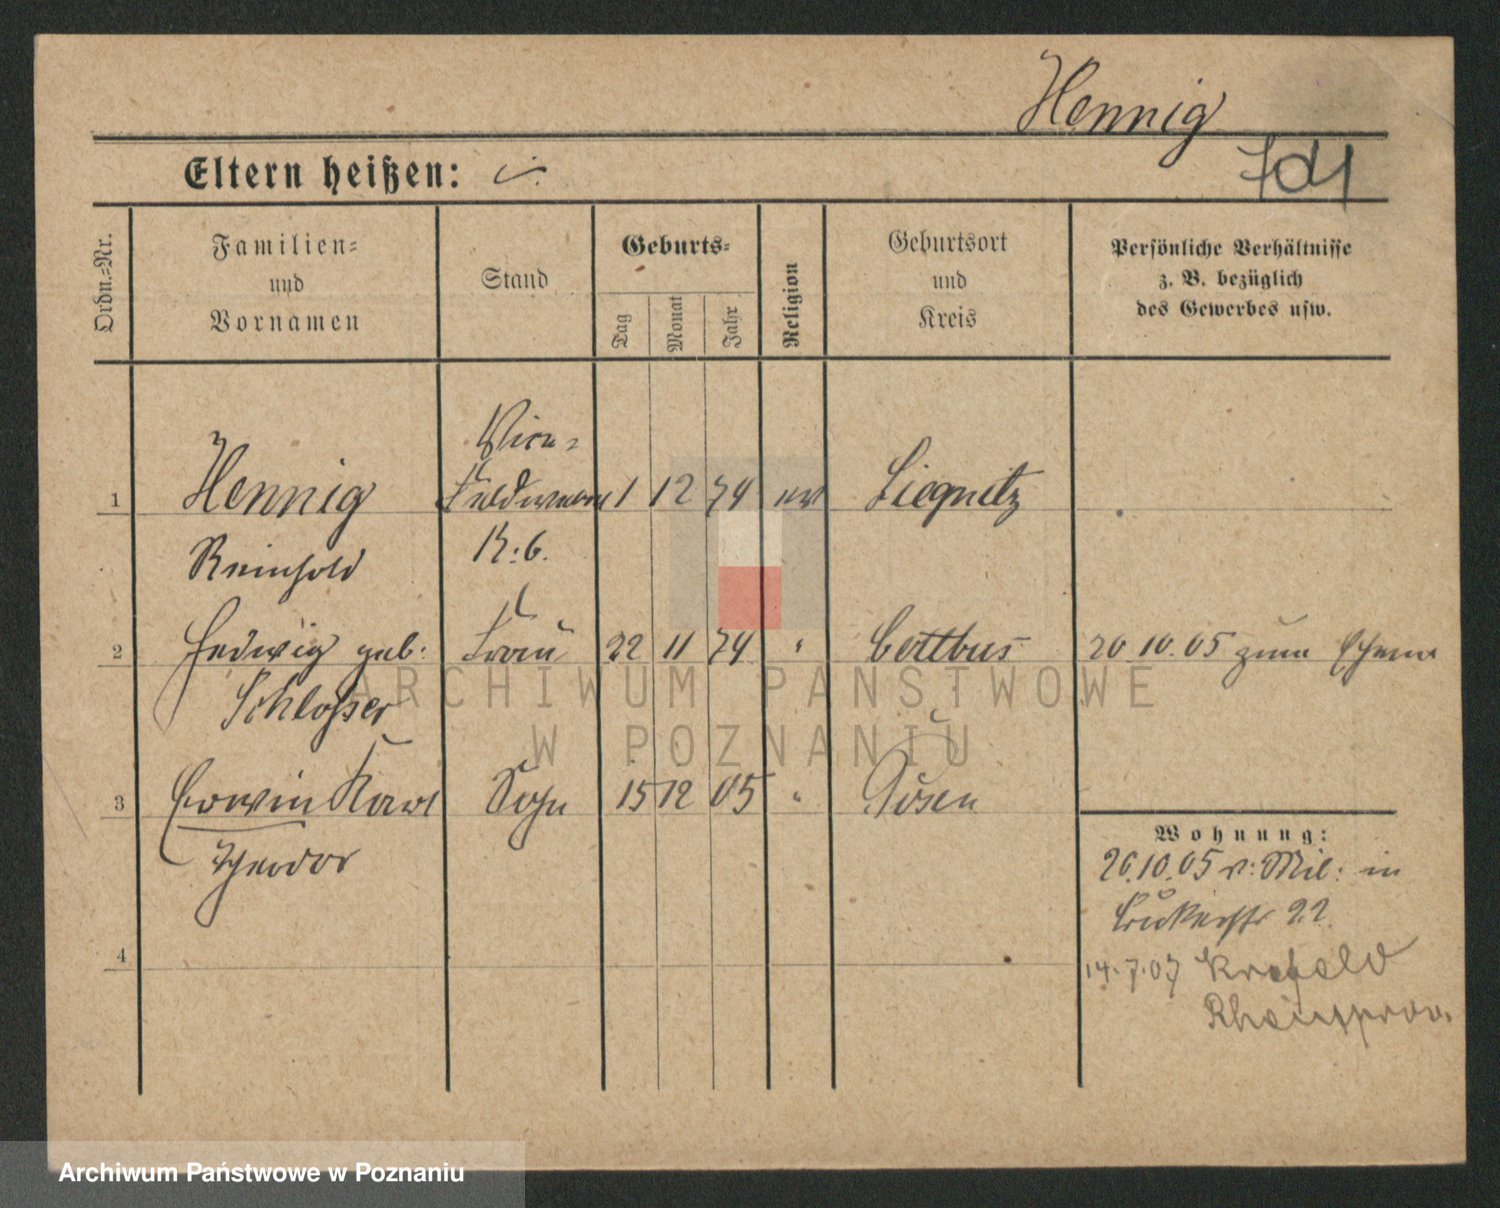 Hennig
Eltern heißen:
7d1
Ordn.-Nr.
Familien-
und
Vornamen
Stand
Geburts-
Tag
Monat
Jahr
Religion
Geburtsort
und
Kreis
Persönliche Verhältnisse
z. B. bezüglich
des Gewerbes usw.
1 Hennig 1 12 74 Liegnitz
Reinhold
2 Hedwig geb: Frau 22 11 74 " Cottbus 20 10.05 zum
Schlosser
3 Erwin Karl Sohn 15 12 05 " Posen
Theodor
Wohnung:
20.10.05 v: Mil: in
22
4
14.7.07 Krefeld
Rheinprov.
ARCHIWUM PAŃSTWOWE
W POZNANIU
Archiwum Państwowe w Poznaniu